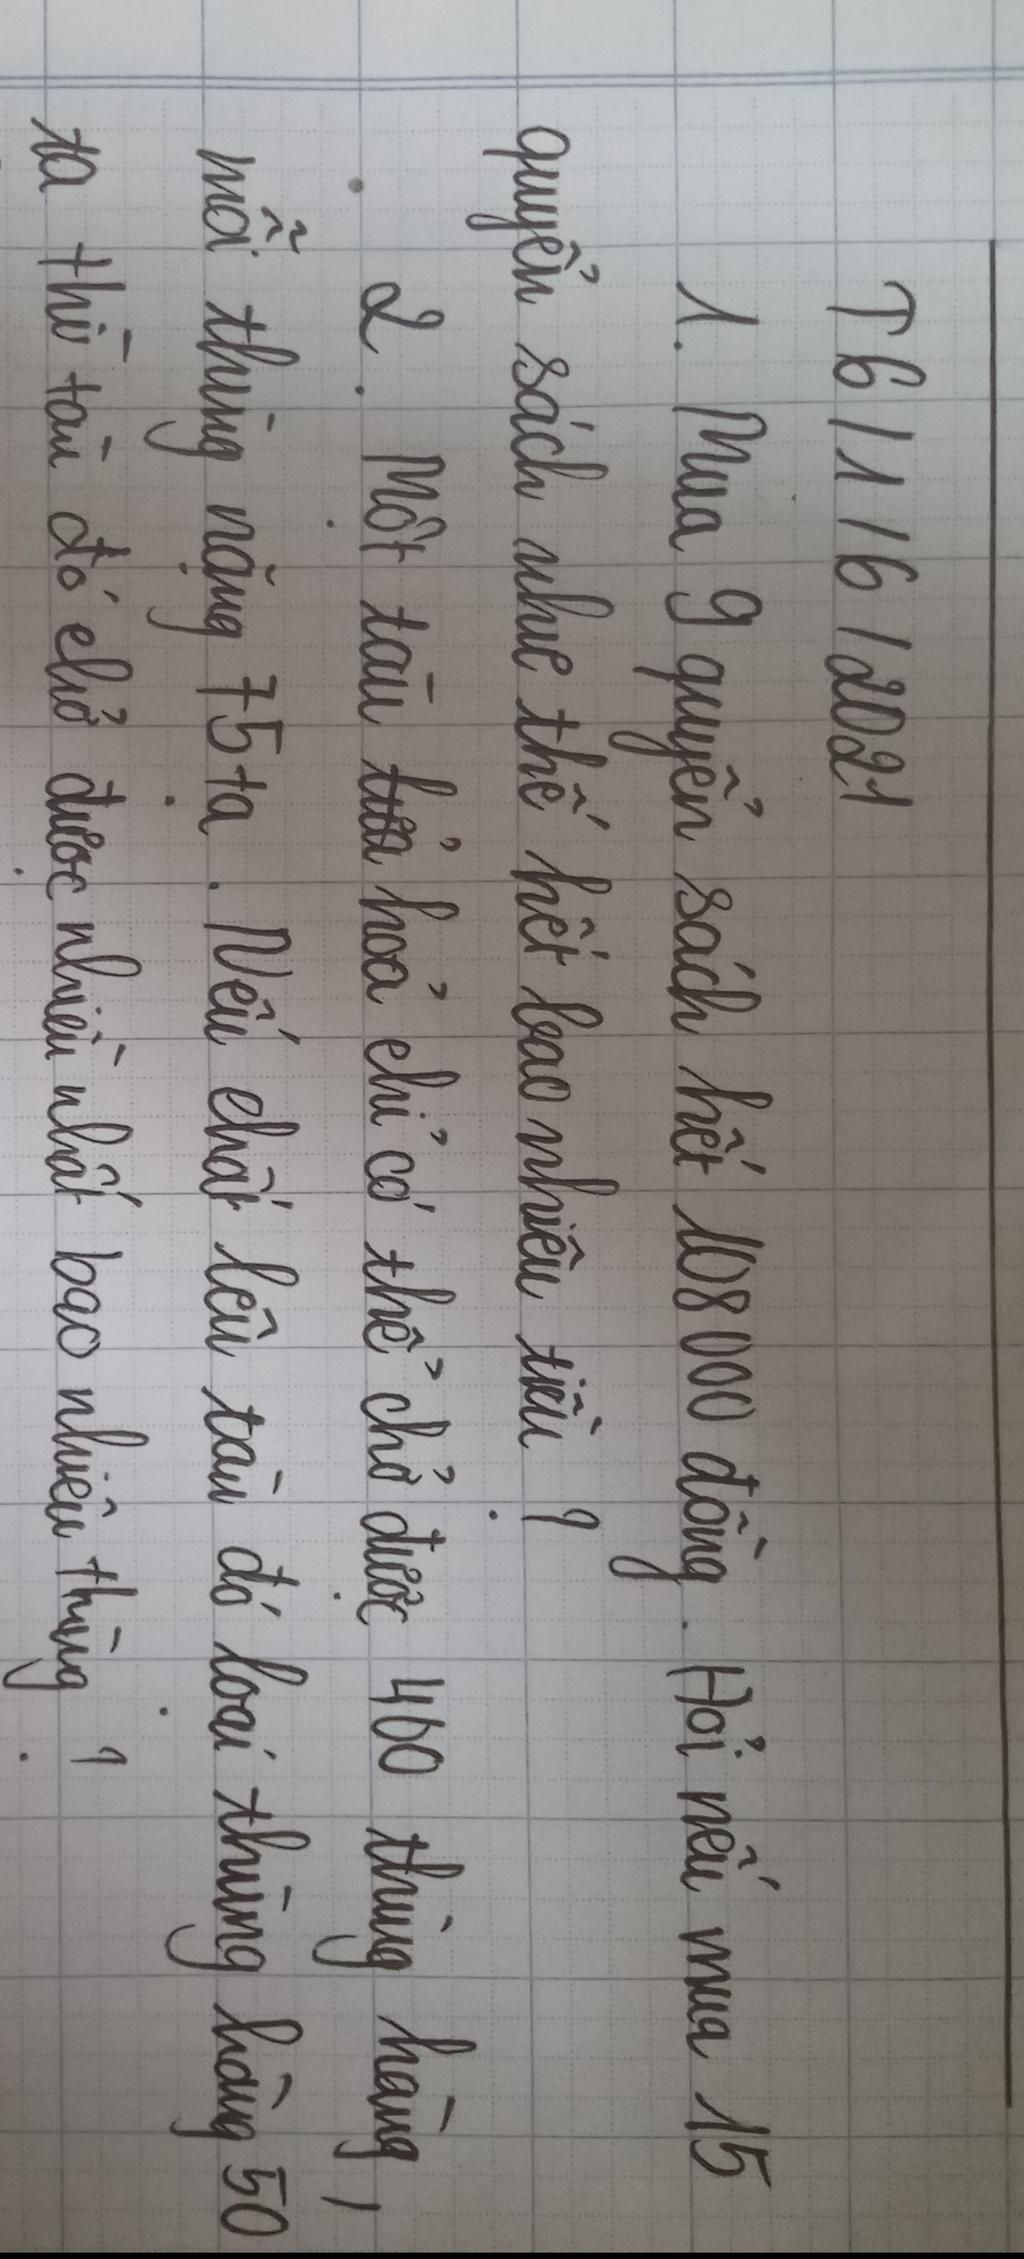 T6/1/6/2021
1. Mua 9 quyển sách hết 108000 đồng. Hỏi nếu mua 15
quyển sách như thế hết bao nhiêu tiền ?
2. Một tàu hoả chỉ có thể chở được 460 thùng hàng,
mỗi thùng nặng 75 tạ. Nếu chất lên tàu đó loại thùng hàng 50
tạ thì tàu đó chở được nhiều nhất bao nhiêu thùng ?